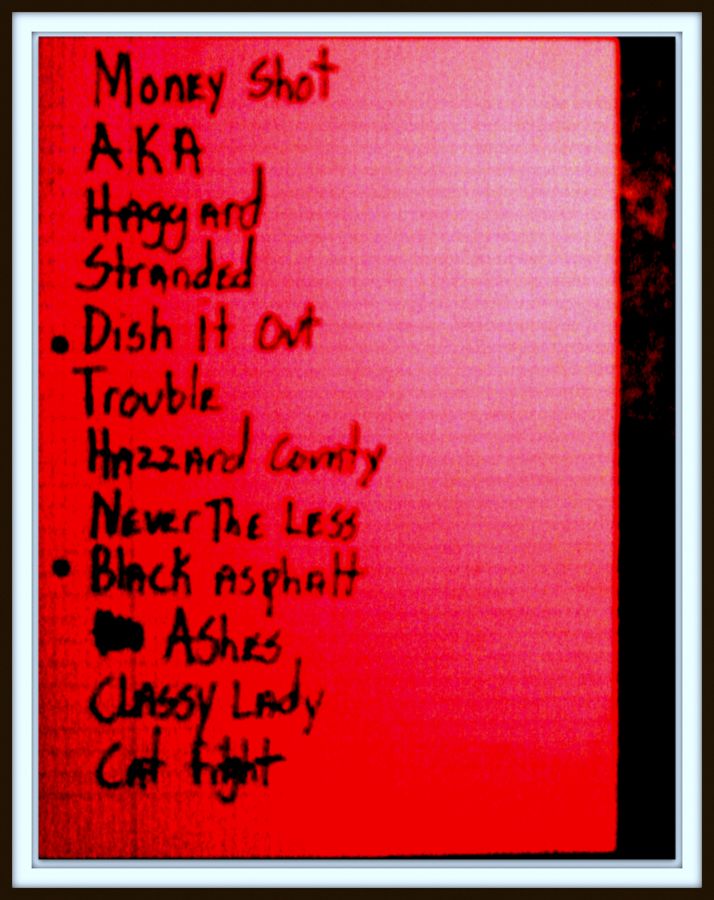 Money Shot
AKA
Haggard
Stranded
• Dish It Out
Trouble
Hazzard County
Never The Less
• Black Asphalt
Ashes
Classy Lady
Cat Fight